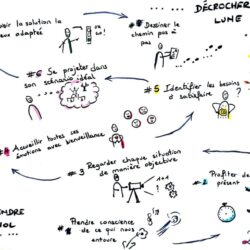 DÉCROCHER
LUNE
oisir la solution la
eux adaptée
Dessiner le
chemin pas à
pas
#6 Se projeter dans
son scénario idéal
GO!
#5 Identifier les besoins
à satisfaire ?
#4 Accueillir toutes ses
émotions avec bienveillance
#3 Regarder chaque situation
de manière objective
Profiter de
présent
NDRE
OL
Prendre conscience
de ce qui nous
entoure